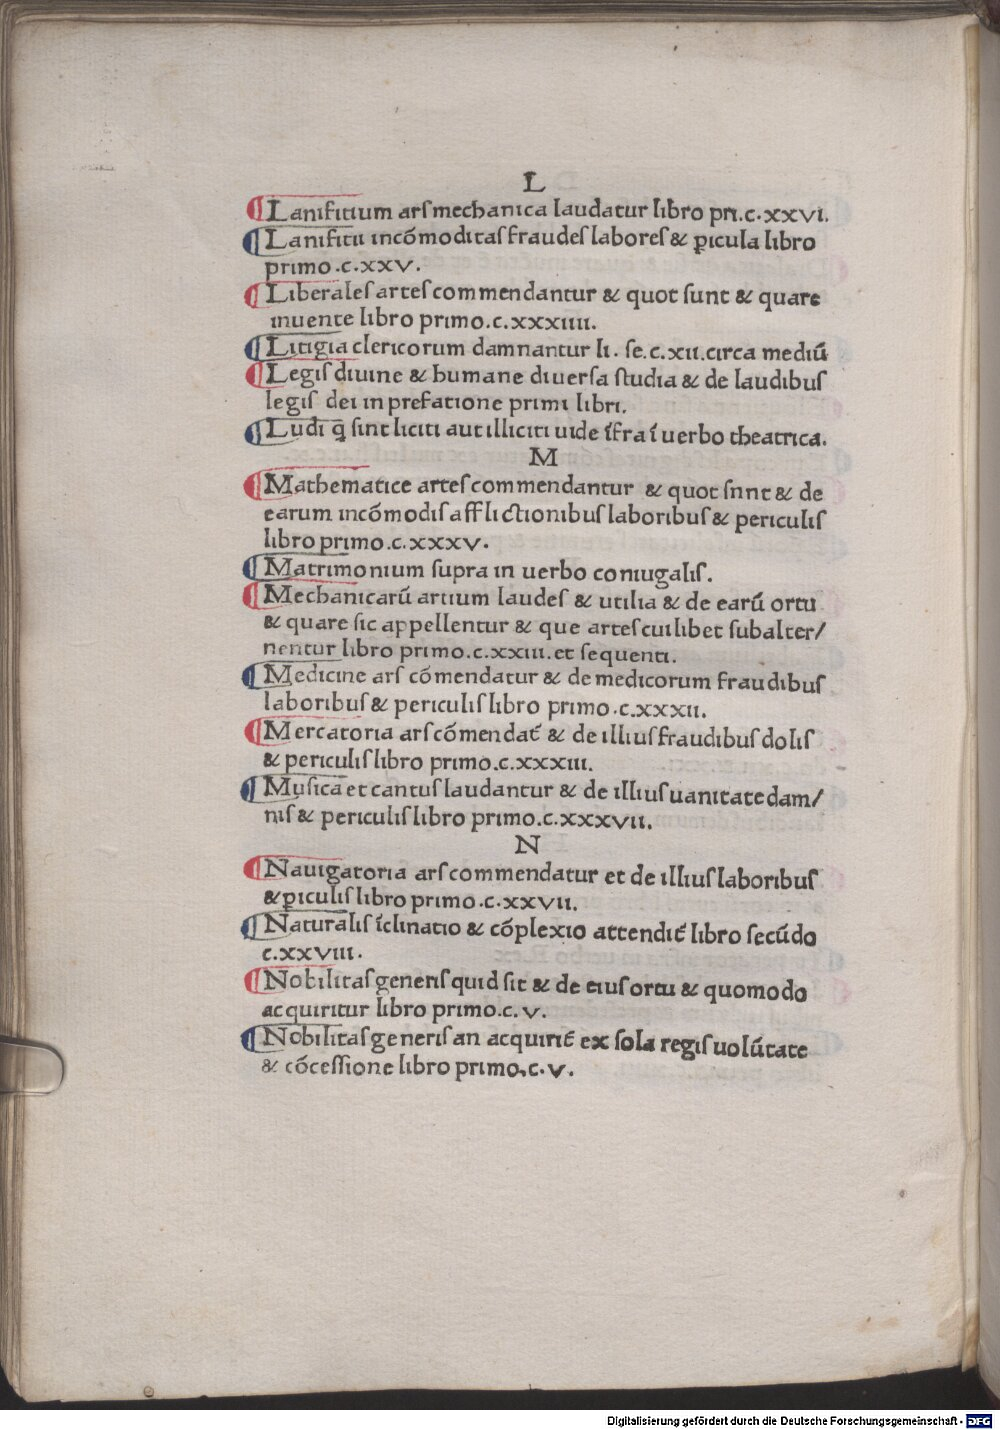 L
Lanifitium ars mechanica laudatur libro pri.c.xxvi.
Lanifitii incōmoditas fraudes labores & ꝑicula libro
primo.c.xxv.
Liberales artes commendantur & quot sunt & quare
inuente libro primo.c.xxxiiii.
Litigia clericorum damnantur li. se.c.xii.circa mediū
Legis diuine & humane diuersa studia & de laudibus
legis dei in prefatione primi libri.
Ludi q̄ sint liciti aut illiciti uide īfra ī uerbo theatrica.
M
Mathematice artes commendantur & quot snnt & de
earum incōmodis afflictionibus laboribus & periculis
libro primo.c.xxxv.
Matrimonium supra in uerbo coniugalis.
Mechanicarū artium laudes & utilia & de earū ortu
& quare sic appellentur & que artes cuilibet subalter/
nentur libro primo.c.xxiii.et sequenti.
Medicine ars cōmendatur & de medicorum fraudibus
laboribus & periculis libro primo.c.xxxii.
Mercatoria ars cōmendat̄ & de illius fraudibus dolis
& periculis libro primo.c.xxxiii.
Musica et cantus laudantur & de illius uanitate dam/
nis & periculis libro primo.c.xxxvii.
N
Nauigatoria ars commendatur et de illius laboribus
& ꝑiculis libro primo.c.xxvii.
Naturalis īclinatio & cōplexio attendit̄ libro secūdo
c.xxviii.
Nobilitas generis quid sit & de eius ortu & quomodo
acquiritur libro primo.c.v.
Nobilitas generis an acquirit̄ ex sola regis uolūtate
& cōcessione libro primo.c.v.
Digitalisierung gefördert durch die Deutsche Forschungsgemeinschaft - DFG